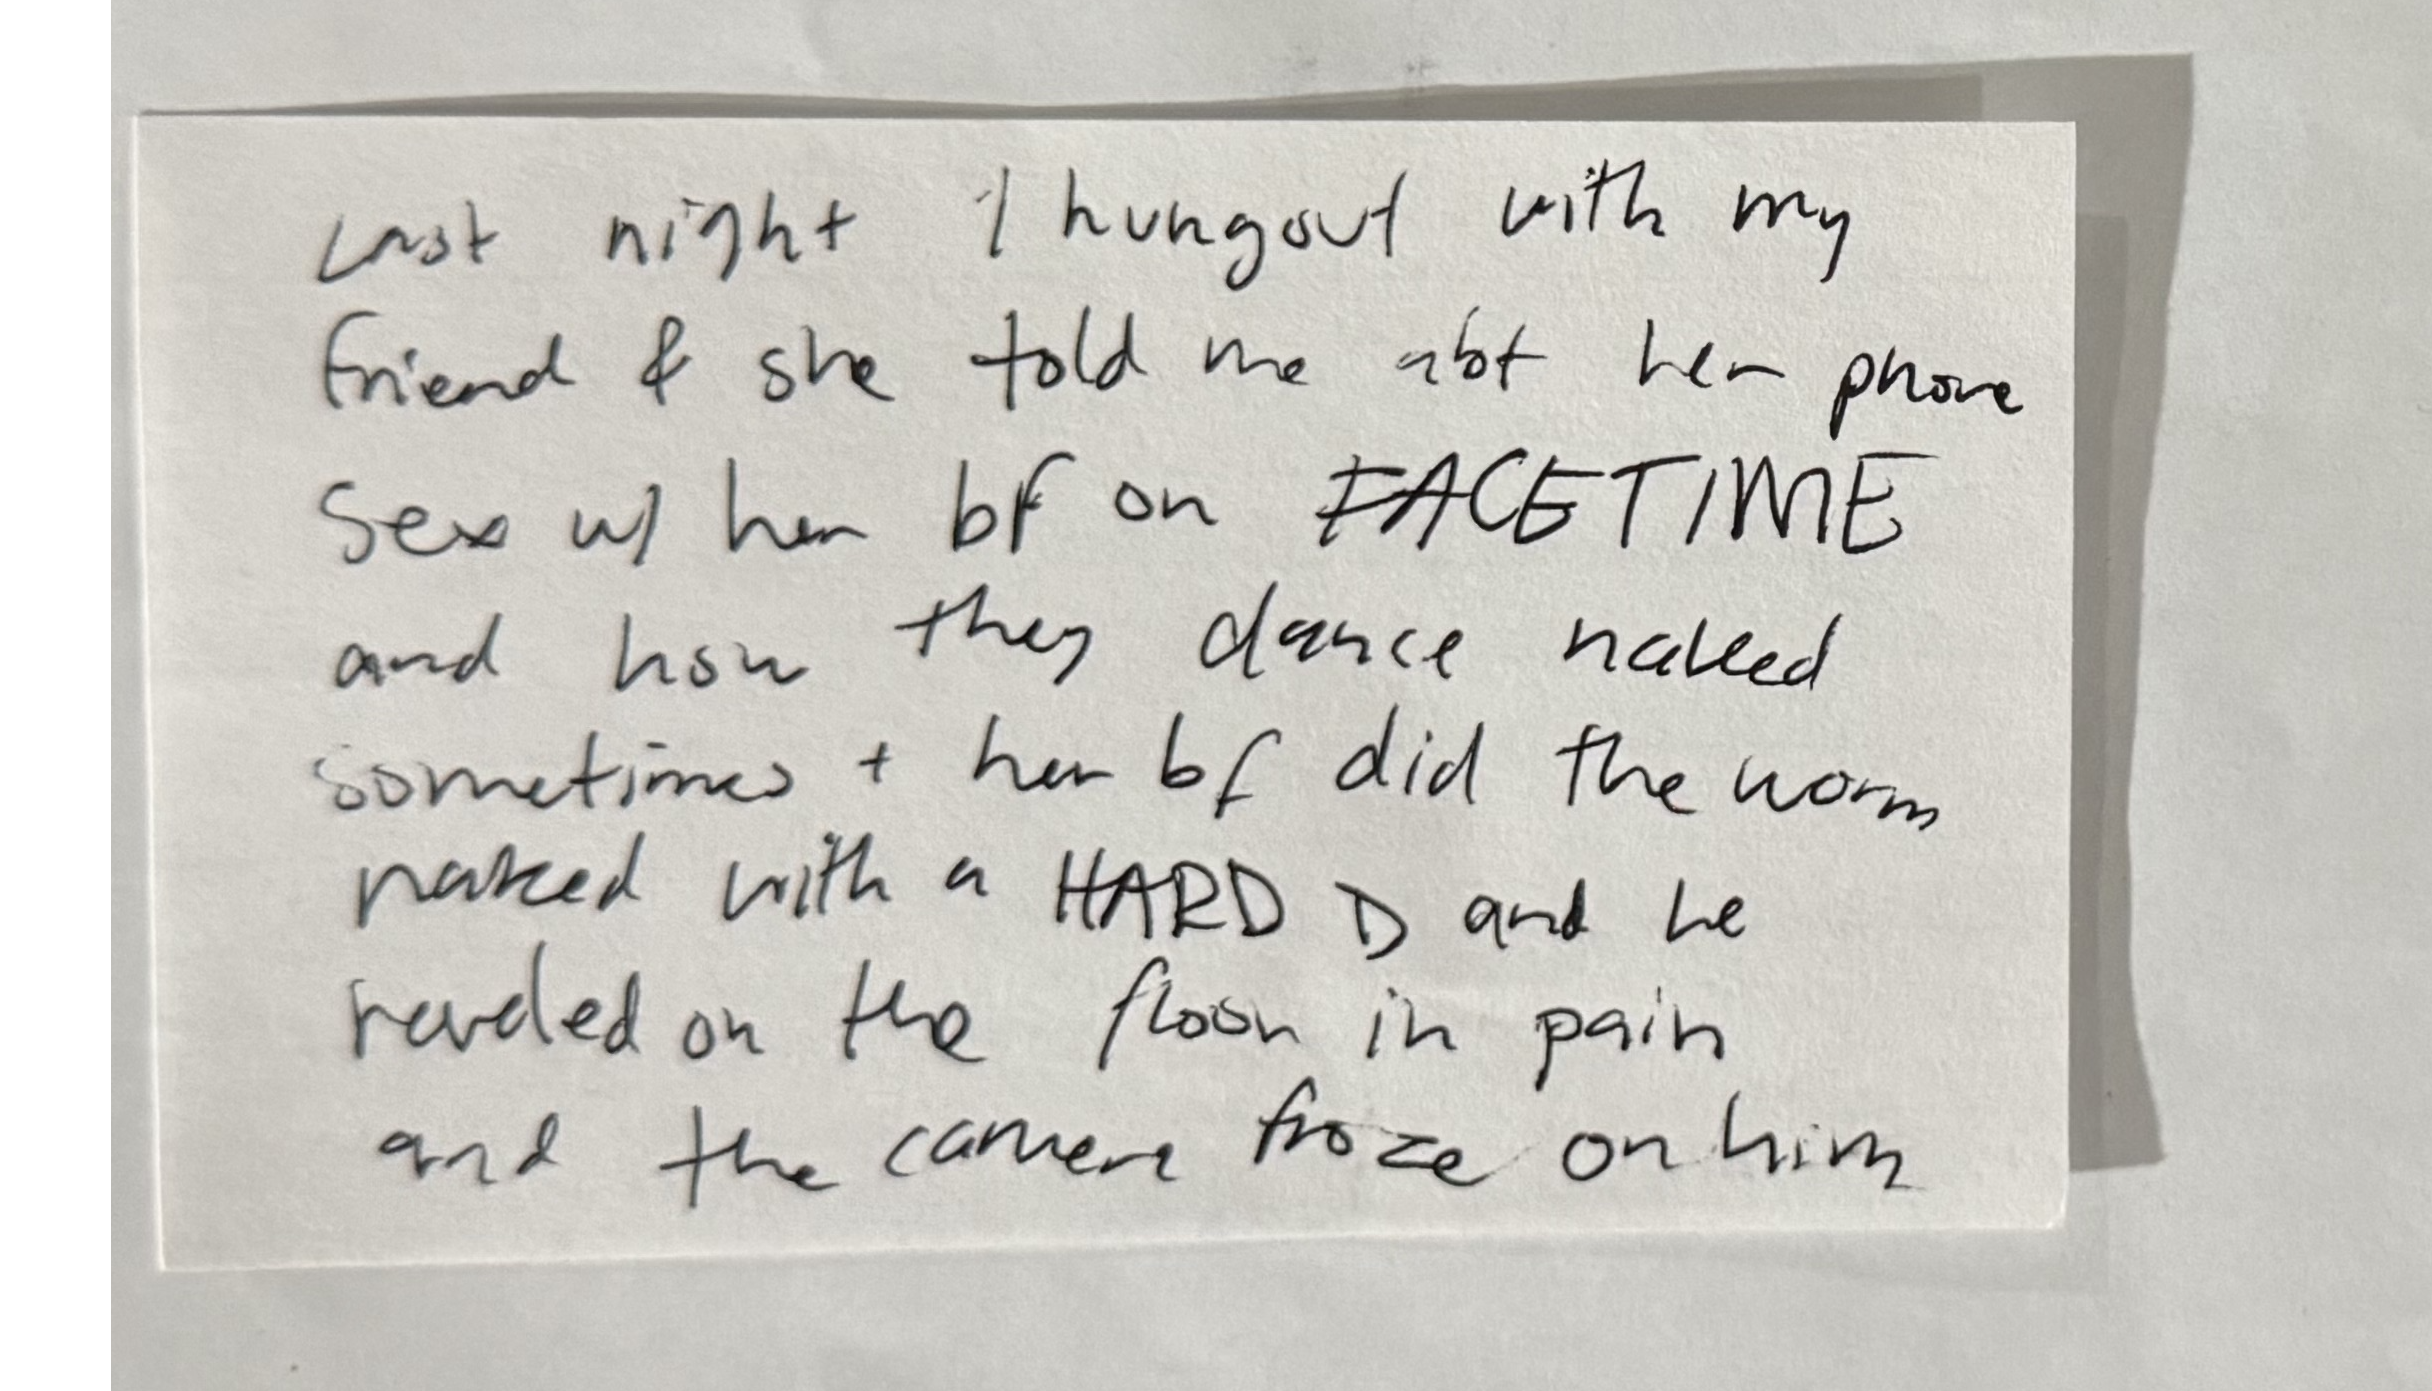 Last night I hungout with my
friend & she told me abt her phone
sex w/ her bf on FACETIME
and how they dance naked
sometimes + her bf did the worm
naked with a HARD D and he
reveled on the floor in pain
and the camera froze on him